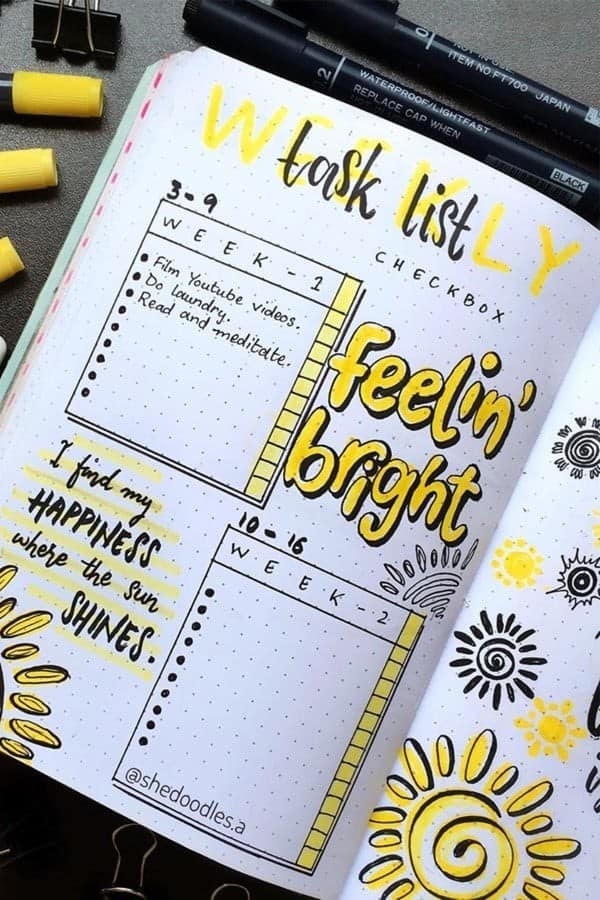 2
WATERPROOF/LIGHTFAST
REPLACE CAP WHEN
BLACK
0
NOT IN USE
ITEM NO.FT700 JAPAN
WEEKLY
task list
CHECKBOX
3-9
WEEK-1
Film Youtube videos.
Do laundry.
Read and meditate.
feelin'
bright
I find my
HAPPINESS
where the sun
SHINES.
10-16
WEEK-2
@shedoodles.a